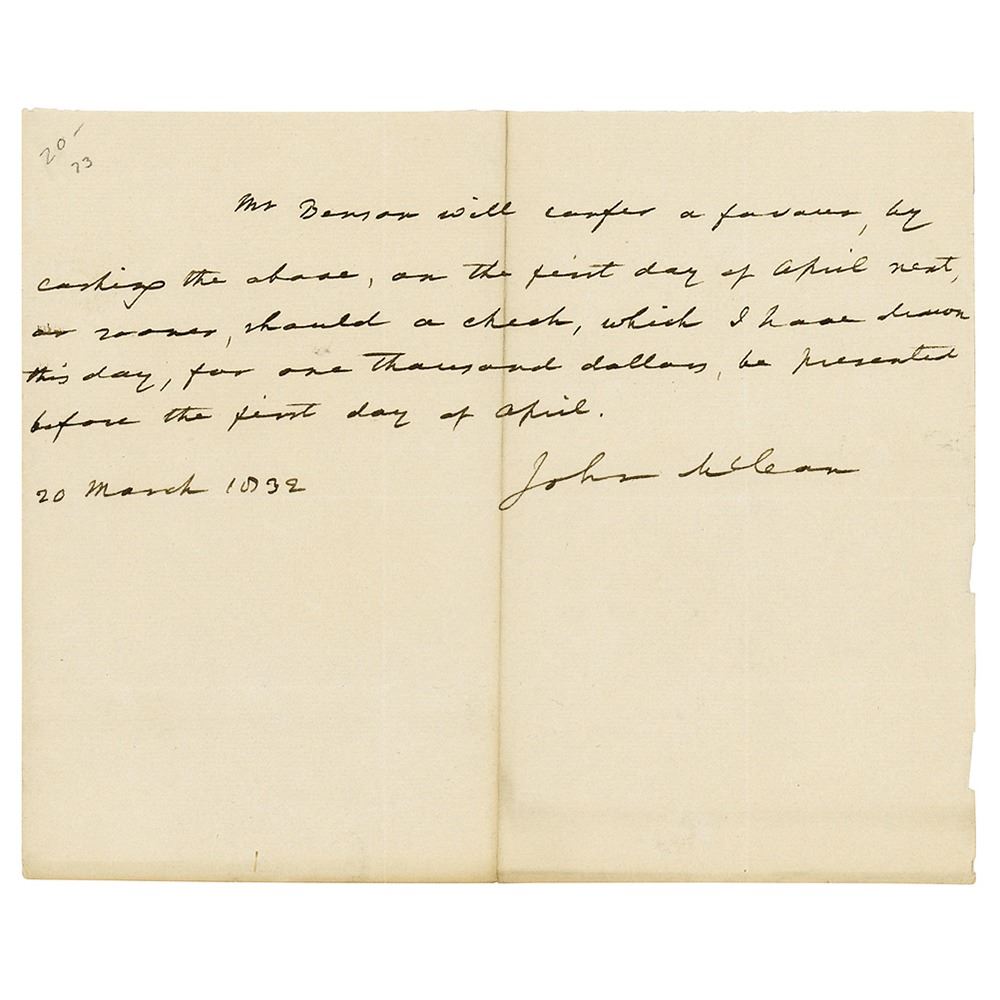 20-
73
Mr Benson will confer a favour, by
cashing the above, on the first day of April next,
or sooner, should a check, which I have drawn
this day, for one thousand dollars, be presented
before the first day of April.
20 March 1832 John McLean